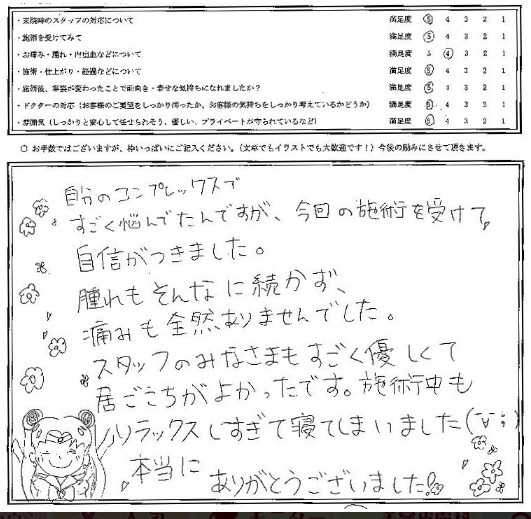 ・来院時のスタッフの対応について 満足度 5 4 3 2 1
・施術を受けてみて 満足度 5 4 3 2 1
・お痛み・腫れ・内出血などについて 満足度 5 4 3 2 1
・施術・仕上がり・経過などについて 満足度 5 4 3 2 1
・施術後、容姿が変わったことで前向き・幸せな気持ちになれましたか？ 満足度 5 4 3 2 1
・ドクターの対応（お客様のご要望をしっかり伺ったか、お客様の気持ちをしっかり考えているかどうか） 満足度 5 4 3 2 1
・雰囲気（しっかりと安心して任せられそう、優しい、プライベートが守られているなど） 満足度 5 4 3 2 1
○ お手数ではございますが、枠いっぱいにご記入ください。（文章でもイラストでも大歓迎です！）今後の励みにさせて頂きます。
自分のコンプレックスで
すごく悩んでたんですが、今回の施術を受けて、
自信がつきました。
腫れもそんなに続かず、
痛みも全然ありませんでした。
スタッフのみなさまもすごく優しくて
居ごこちがよかったです。施術中も
リラックスしすぎて寝てしまいました(
本当に
ありがとうございました!